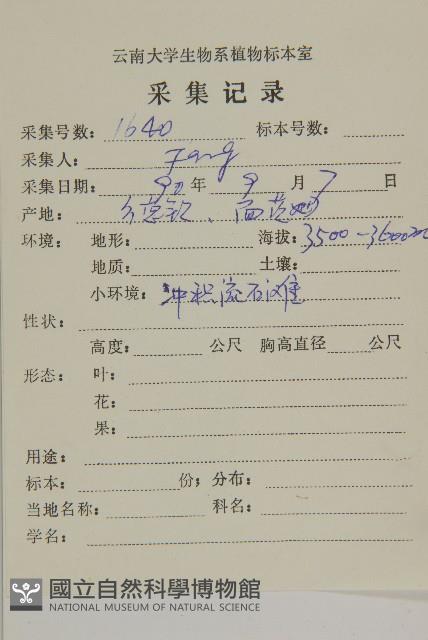 云南大学生物系植物标本室
采集记录
采集号数：1640 标本号数：
采集人：Fang
采集日期：90年9月7日
产地：德钦、
环境：地形： 海拔：3500-3600m
地质： 土壤：
小环境：冲积流石滩
性状：
高度： 公尺 胸高直径 公尺
形态：叶：
花：
果：
用途：
标本： 份；分布：
当地名称： 科名：
学名：
國立自然科學博物館
NATIONAL MUSEUM OF NATURAL SCIENCE